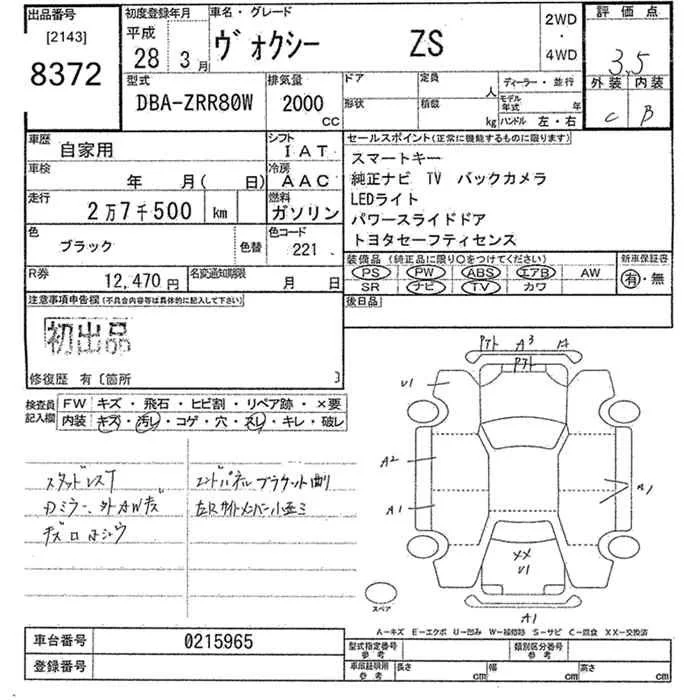 出品番号
[2143]
8372
初度登録年月
平成
28 3月
車名・グレード
ヴォクシー ZS
2WD
・
4WD
評価点
3.5
外装 内装
C B
型式
DBA-ZRR80W
排気量
2000
CC
ドア
形状
定員
人
積載
kg
ディーラー・並行
モデル年式 年
ハンドル 左・右
車歴
自家用
シフト
IAT
車検
年 月( 日)
冷房
AAC
走行
2万7千500 km
燃料
ガソリン
色
ブラック
色替
色コード
221
R券
12,470 円
名変通知期限
月 日
セールスポイント(正常に機能するものに限ります)
スマートキー
純正ナビ TV バックカメラ
LEDライト
パワースライドドア
トヨタセーフティセンス
装備品(純正品に限り○をつけてください)
PS PW ABS エアB AW
SR ナビ TV カワ
新車保証書
有・無
後日品
注意事項申告欄(不具合内容等は具体的に記入して下さい)
初出品
修復歴 有〔箇所 〕
検査員記入欄
FW キズ・飛石・ヒビ割・リペア跡・×要
内装 キズ・汚レ・コゲ・穴・スレ・キレ・破レ
スタッドレスT
エンドパネルブラケット曲り
左Rサイドメンバー小歪ミ
PタレA3
Pタレ
U1
A2
A1
A1
XX
U1
A1
スペア
A-キズ E-エクボ U-凹み W-補修跡 S-サビ C-腐食 XX-交換済
車台番号 0215965
登録番号
型式指定番号 参考
類別区分番号 参考
車庫証明用 参考
長さ cm 幅 cm 高さ cm